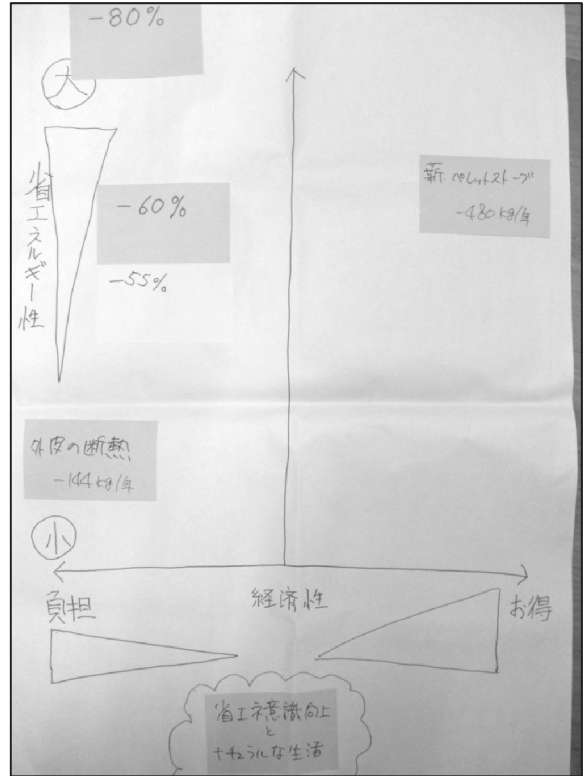 -80%
大
省エネルギー性
薪ペレットストーブ
-480kg/年
-60%
-55%
外皮の断熱
-144kg/年
小
負担
経済性
お得
省エネ意識向上
と
ナチュラルな生活